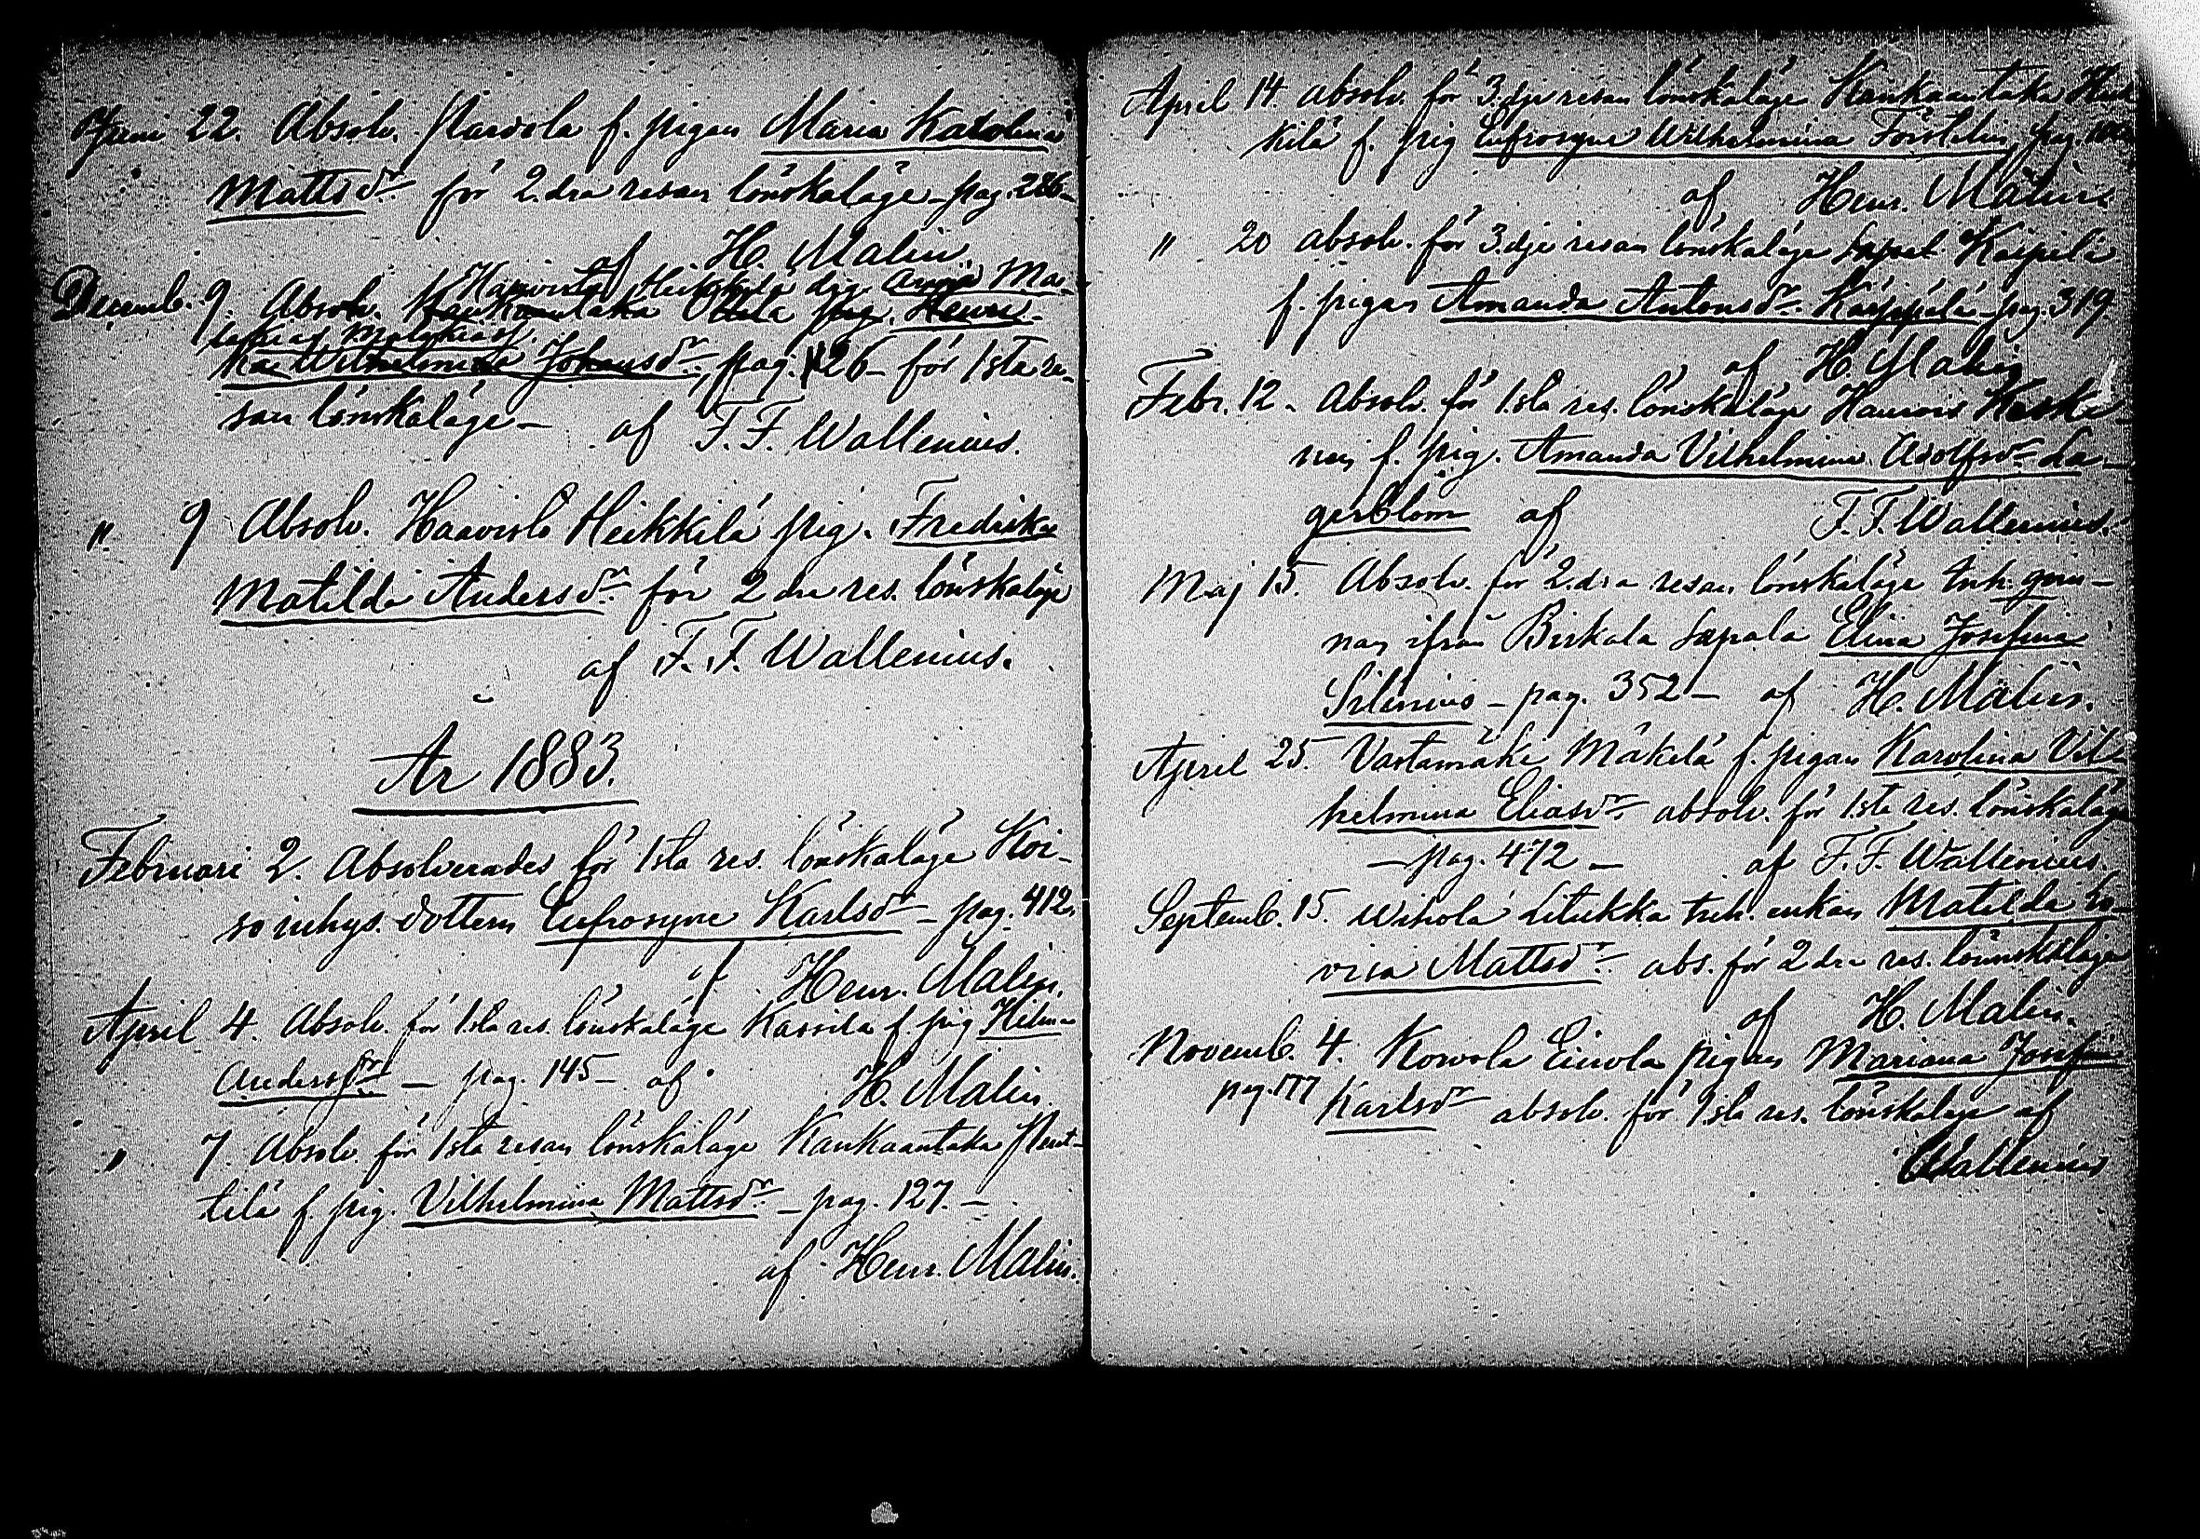 Juni 22. Absolv. Narvola f. pigan Maria Karolina
Mattsdr för 2.dra resan lönskaläge - pag. 286 -
af H. Malin.
Haavisto Heikkilä dgr Maria Ma-
Decemb. 9. Absolv. Kankaantaka Ollila pig. Henri-
ka Wilhelmina Johansdr, pag. 126 - för 1sta re-
san lönskaläge - af F. F. Wallenius.
" 9 Absolv. Haavisto Heikkilä pig. Fredrika
Matilda Andersdr för 2dra res. lönskaläge
af F. F. Wallenius.
År 1883.
Februari 2. Absolverades för 1sta res. lönskaläge Koi-
so inhys. dottern Eufrosyne Karlsdr - pag. 412.
af Henr. Malin.
April 4. Absolv. för 1sta res. lönskaläge Kassila f. pig Hilma
Andersdr - pag. 145 - af H. Malin.
" 7. Absolv. för 1sta resan lönskaläge Kankaantaka Pent-
tilä f. pig. Vilhelmina Mattsdr - pag. 127. -
af Henr. Malin.
April 14. absolv. för 3.dje resan lönskaläge Kankaantaka
kilä f. pig Eufrosyne Wilhelmina Forstelin pag.
af Henr. Malin
" 20 absolv. för 3.dje resan lönskaläge Kaipila
f. pigan Amanda Antonsdr Käppilä - pag. 319
af H. Malin
Febr. 12. Absolv. för 1.sta res. lönskaläge Haavis Koski-
nen f. pig. Amanda Vilhelmina Adolfsdr La-
gerblom af F. F. Wallenius.
Maj 15. Absolv. för 2.dra resan lönskaläge inh. qvin-
nan ifrån Birkala Sapala Elina Josefina
Silenius - pag. 352 - af H. Malin.
April 25. Vastamäki Mäkelä f. pigan Karolina Vil-
helmina Eliasdr absolv. för 1.sta res. lönskaläge
- pag. 472 - af F. F. Wallenius.
Septemb. 15. Wihola Litukka inh. enkan Matilda Lo-
visa Mattsdr abs. för 2dra res. lönnskaläge
af H. Malin.
Novemb. 4. Kovola Eirola pigan Mariana Josef
pag. 177 Karlsdr absolv. för 1.sta res. lönskaläge af
Wallenius